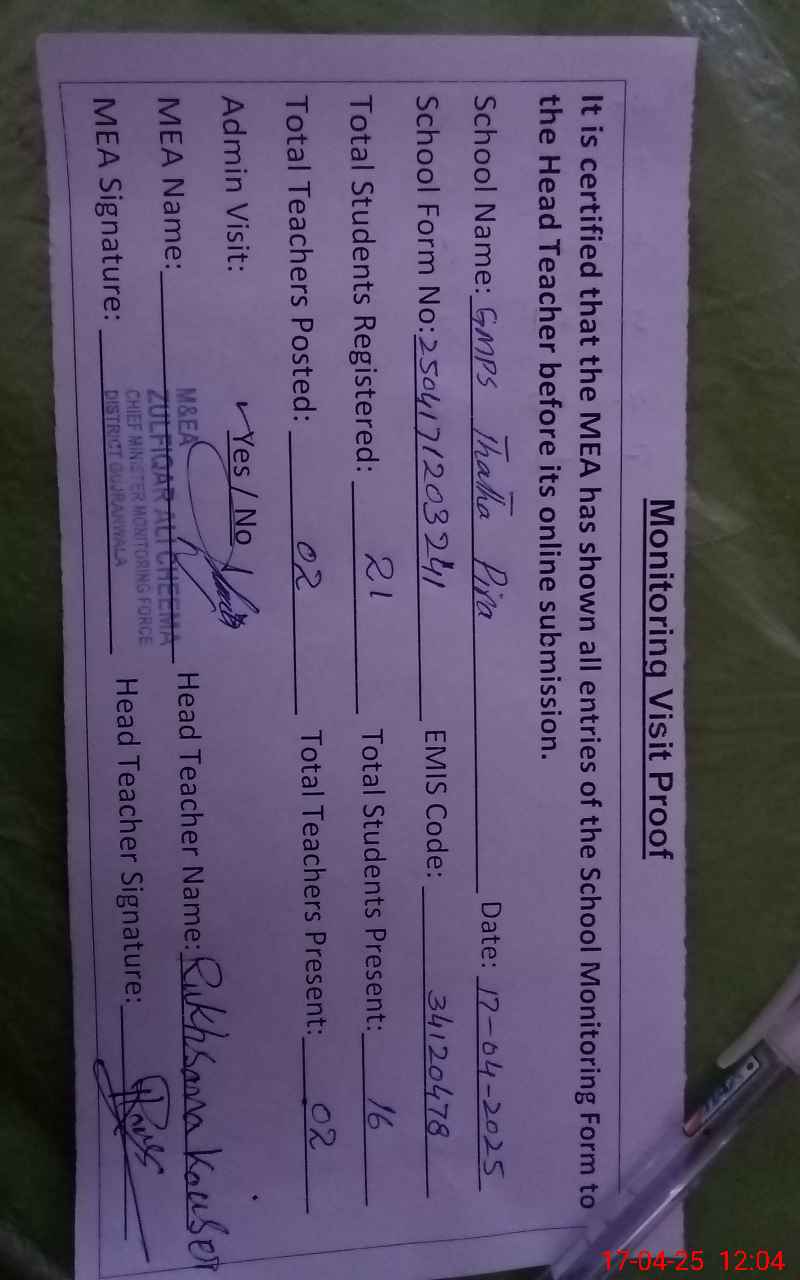 Monitoring Visit Proof
It is certified that the MEA has shown all entries of the School Monitoring Form to
the Head Teacher before its online submission.
School Name: GMPS Thatha Pira Date: 17-04-2025
School Form No: 2504171203241 EMIS Code: 34120478
Total Students Registered: 21 Total Students Present: 16
Total Teachers Posted: 02 Total Teachers Present: 02
Admin Visit: ✓Yes / No
MEA Name: Head Teacher Name: Rukhsana Kouser
MEA Signature: Head Teacher Signature:
M&EA
ZULFIQAR ALI CHEEMA
CHIEF MINISTER MONITORING FORCE
DISTRICT GUJRANWALA
17-04-25 12:04